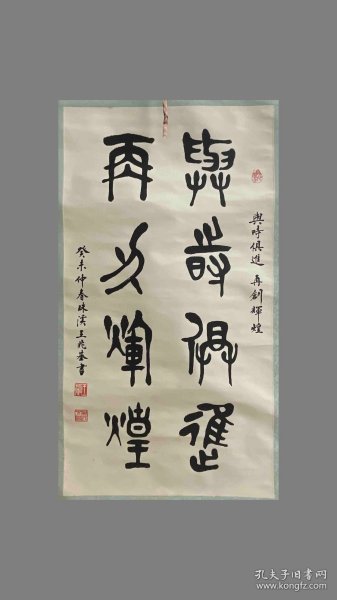 與時俱進 再創輝煌
與時俱進
再創輝煌
癸未仲春 兆基書
孔夫子旧书网
www.kongfz.com